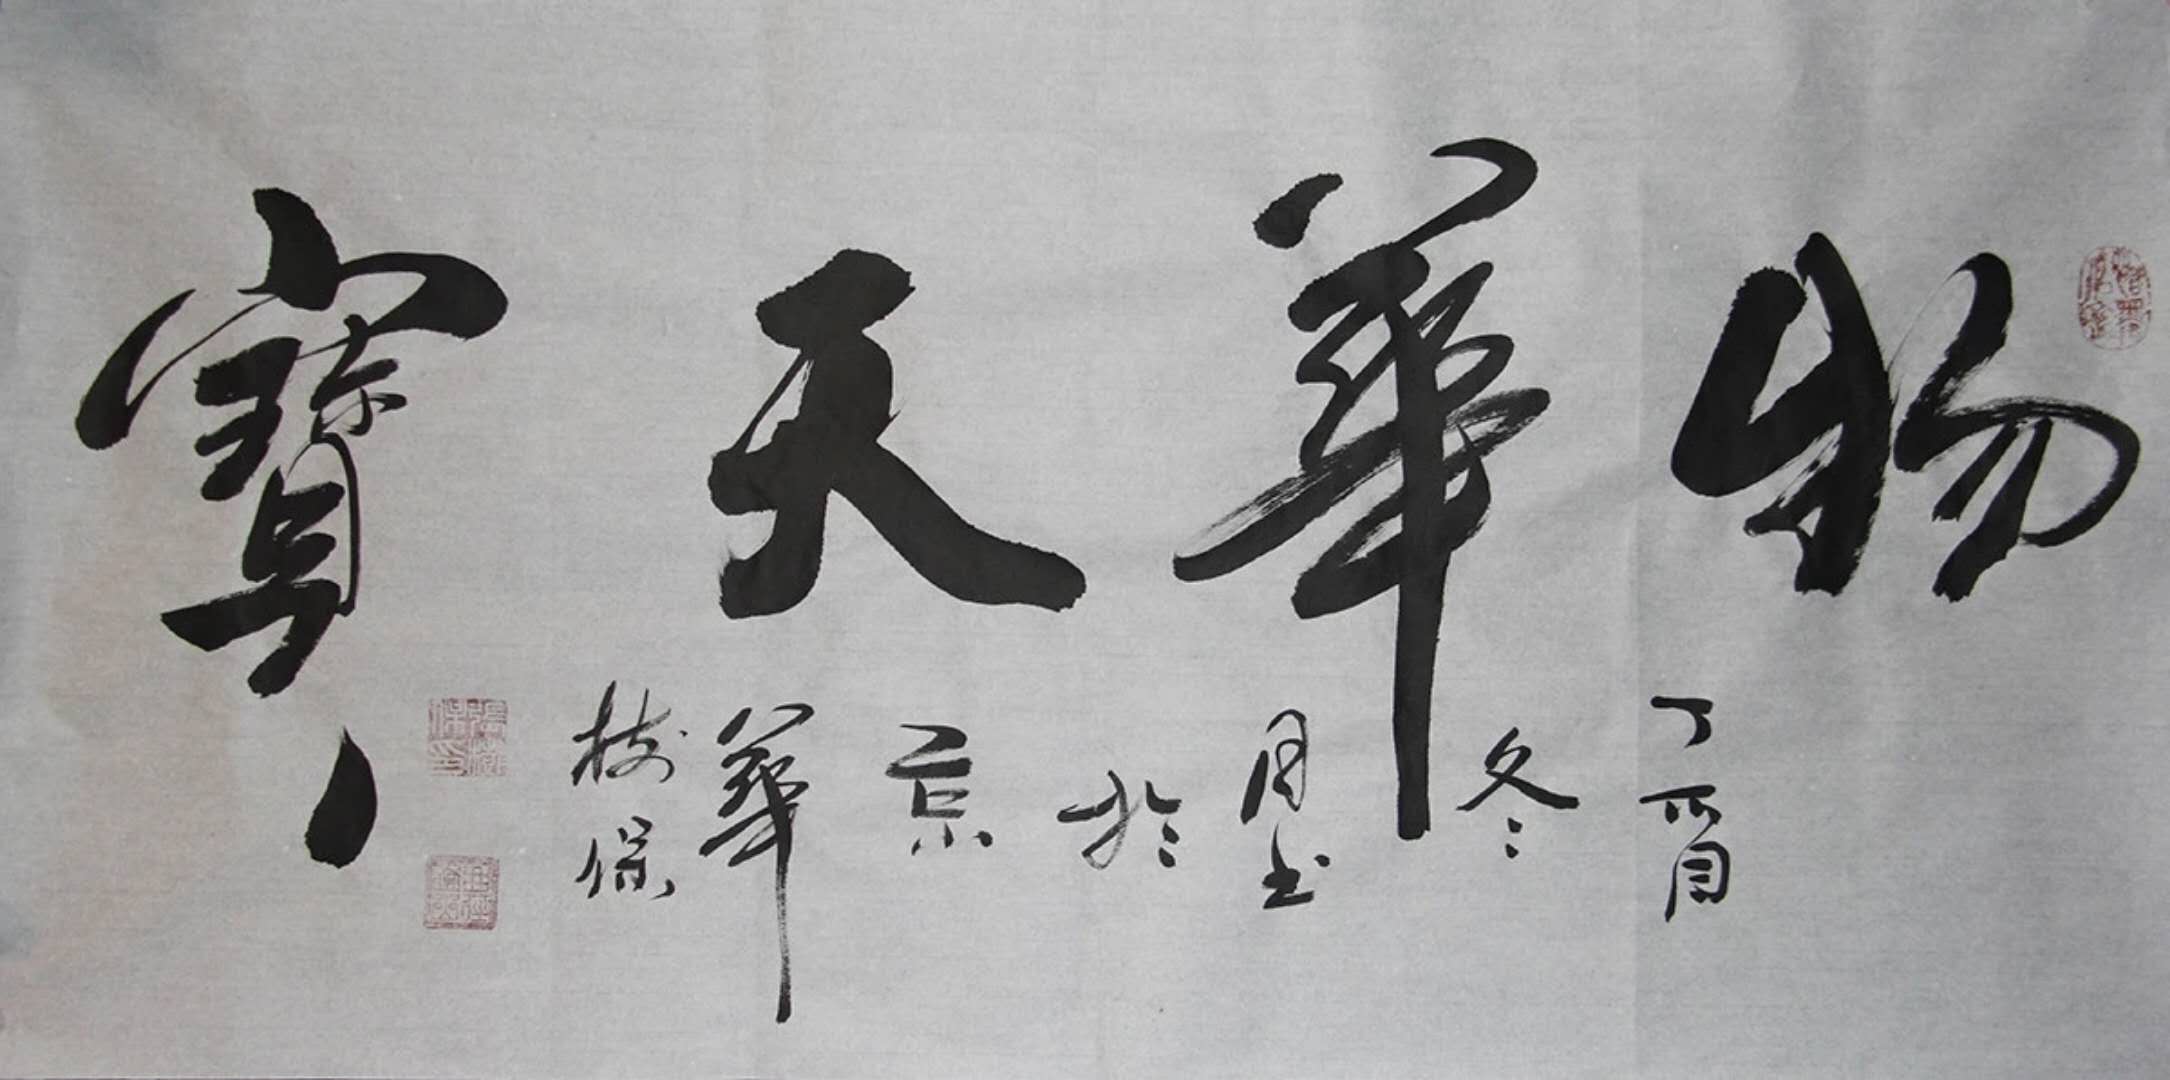 物華天寶
丁酉
冬
月書
於
京
華
樹保